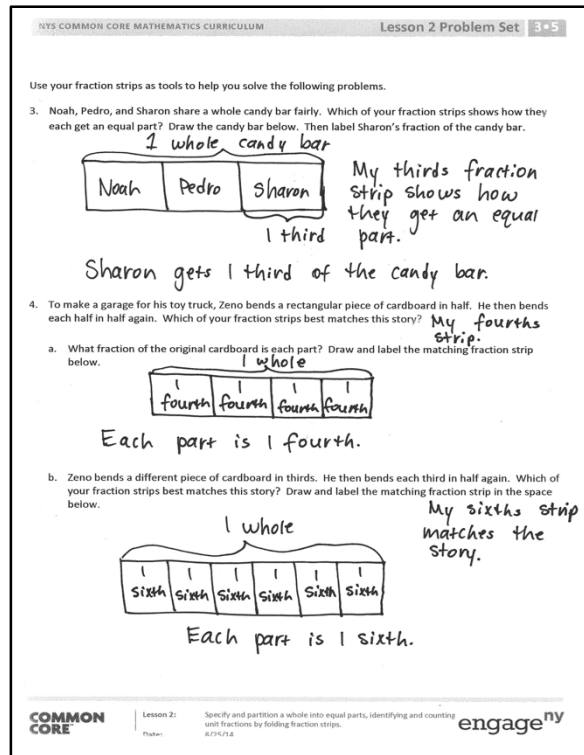 NYS COMMON CORE MATHEMATICS CURRICULUM Lesson 2 Problem Set 3•5
Use your fraction strips as tools to help you solve the following problems.
3. Noah, Pedro, and Sharon share a whole candy bar fairly. Which of your fraction strips shows how they
each get an equal part? Draw the candy bar below. Then label Sharon's fraction of the candy bar.
1 whole candy bar
Noah Pedro Sharon
1 third
My thirds fraction
strip shows how
they get an equal
part.
Sharon gets 1 third of the candy bar.
4. To make a garage for his toy truck, Zeno bends a rectangular piece of cardboard in half. He then bends
each half in half again. Which of your fraction strips best matches this story?
My fourths
strip.
a. What fraction of the original cardboard is each part? Draw and label the matching fraction strip
below.
1 whole
1 1 1 1
fourth fourth fourth fourth
Each part is 1 fourth.
b. Zeno bends a different piece of cardboard in thirds. He then bends each third in half again. Which of
your fraction strips best matches this story? Draw and label the matching fraction strip in the space
below.
My sixths strip
matches the
story.
1 whole
1 1 1 1 1 1
sixth sixth sixth sixth sixth sixth
Each part is 1 sixth.
COMMON
CORE™
Lesson 2: Specify and partition a whole into equal parts, identifying and counting
unit fractions by folding fraction strips.
Date: 8/25/14
engage ny